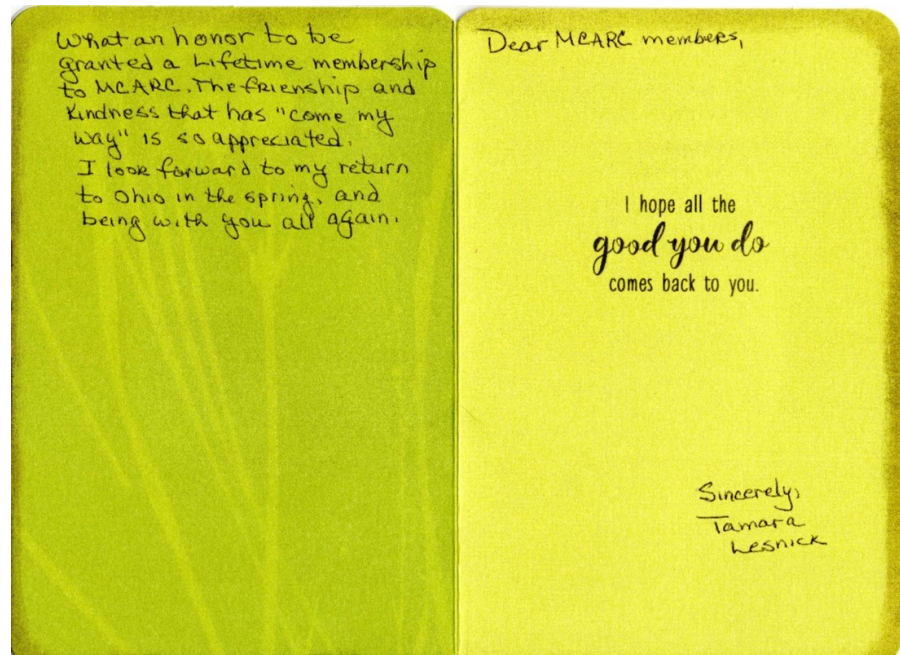 What an honor to be
granted a Lifetime membership
to MCARC. The frienship and
kindness that has "come my
way" is so appreciated.
I look forward to my return
to Ohio in the spring, and
being with you all again.
Dear MCARC members,
I hope all the
good you do
comes back to you.
Sincerely,
Tamara
Lesnick